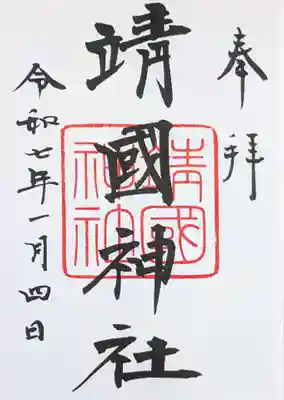 奉拜
靖國神社
令和七年一月四日
靖國
神社